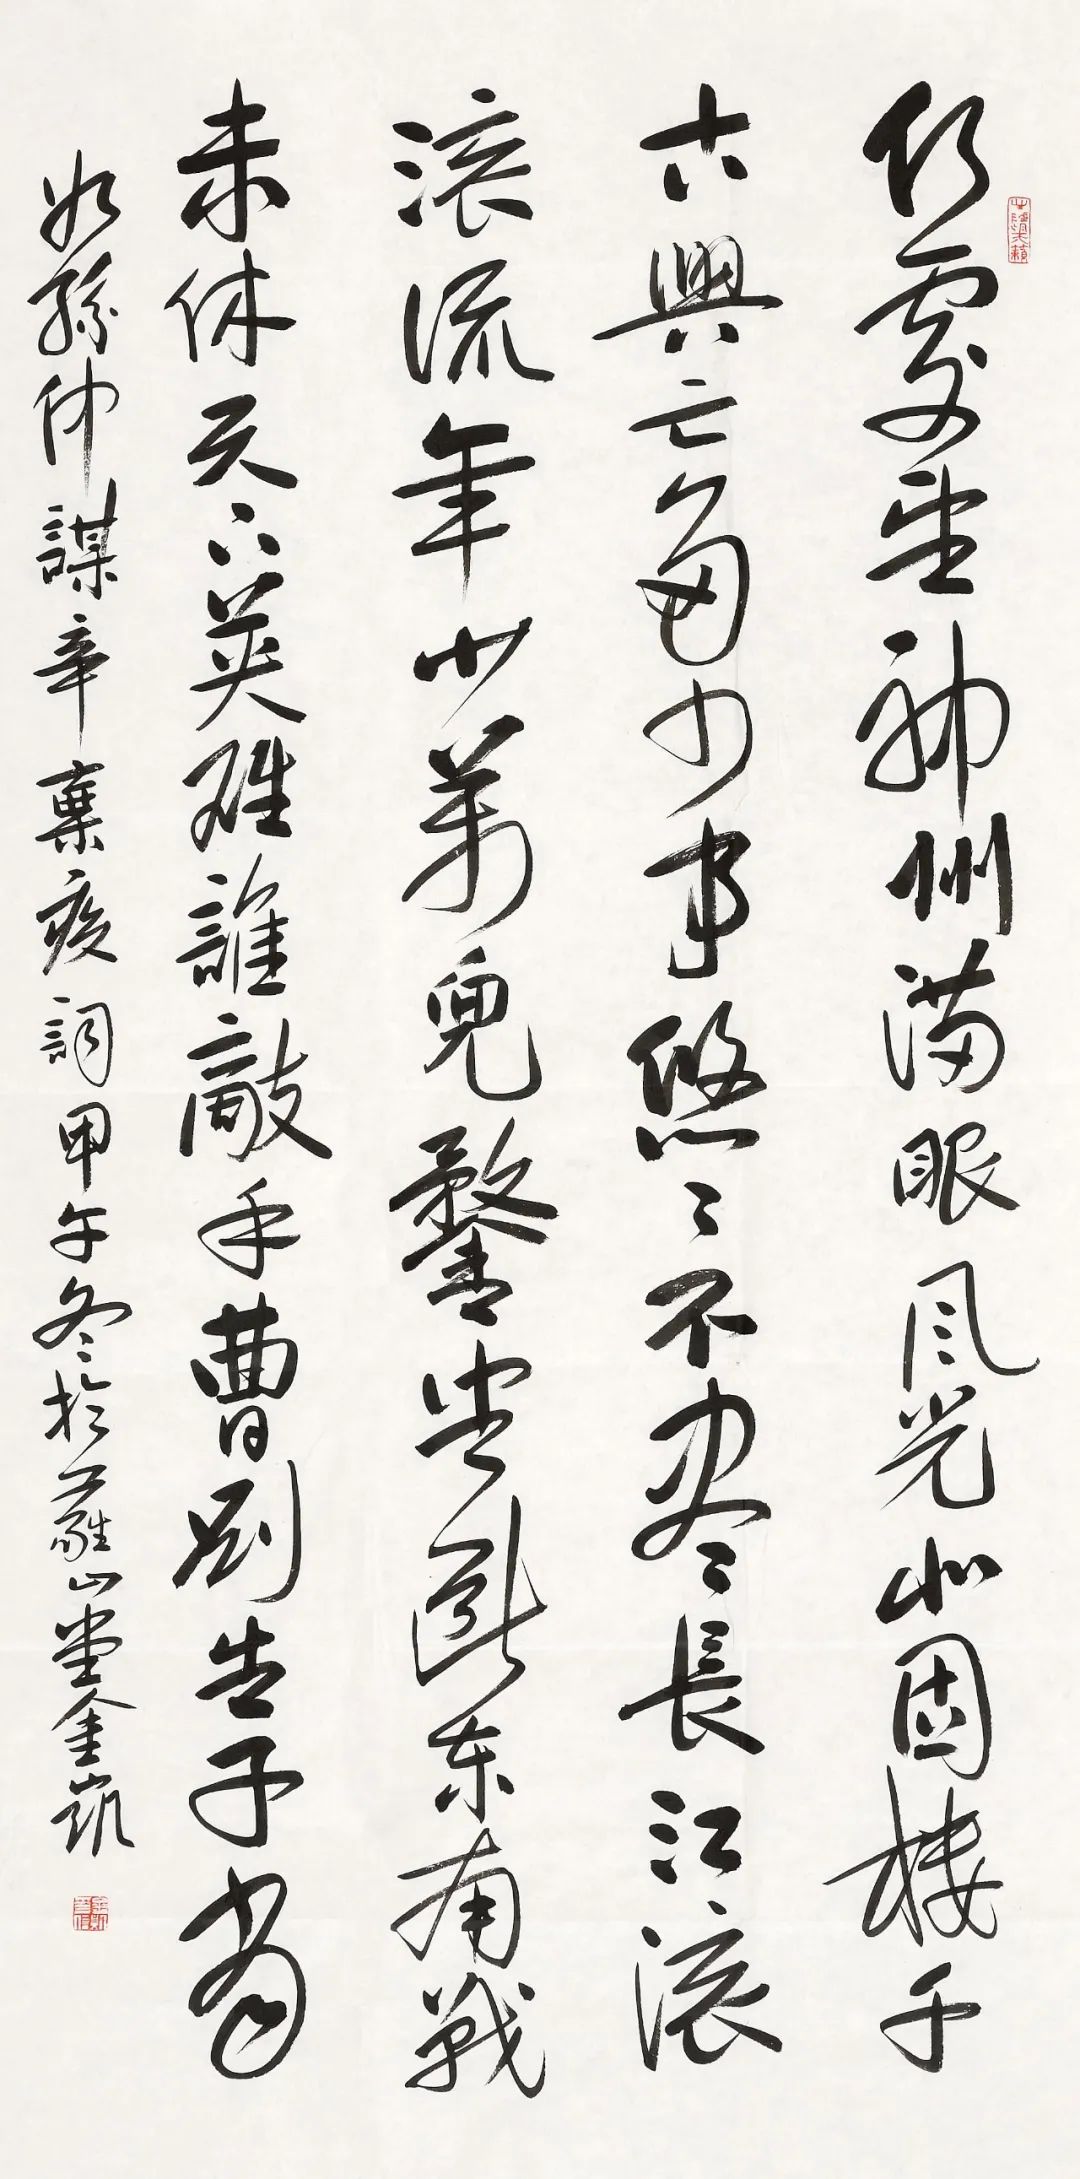 何處望神州滿眼風光北固樓千
古興亡多少事悠々不盡長江滚
滚流年少萬兜鍪坐斷東南戰
未休天下英雄誰敵手曹劉生子當
如孫仲謀辛棄疾詞甲午冬於蘿山堂金凱